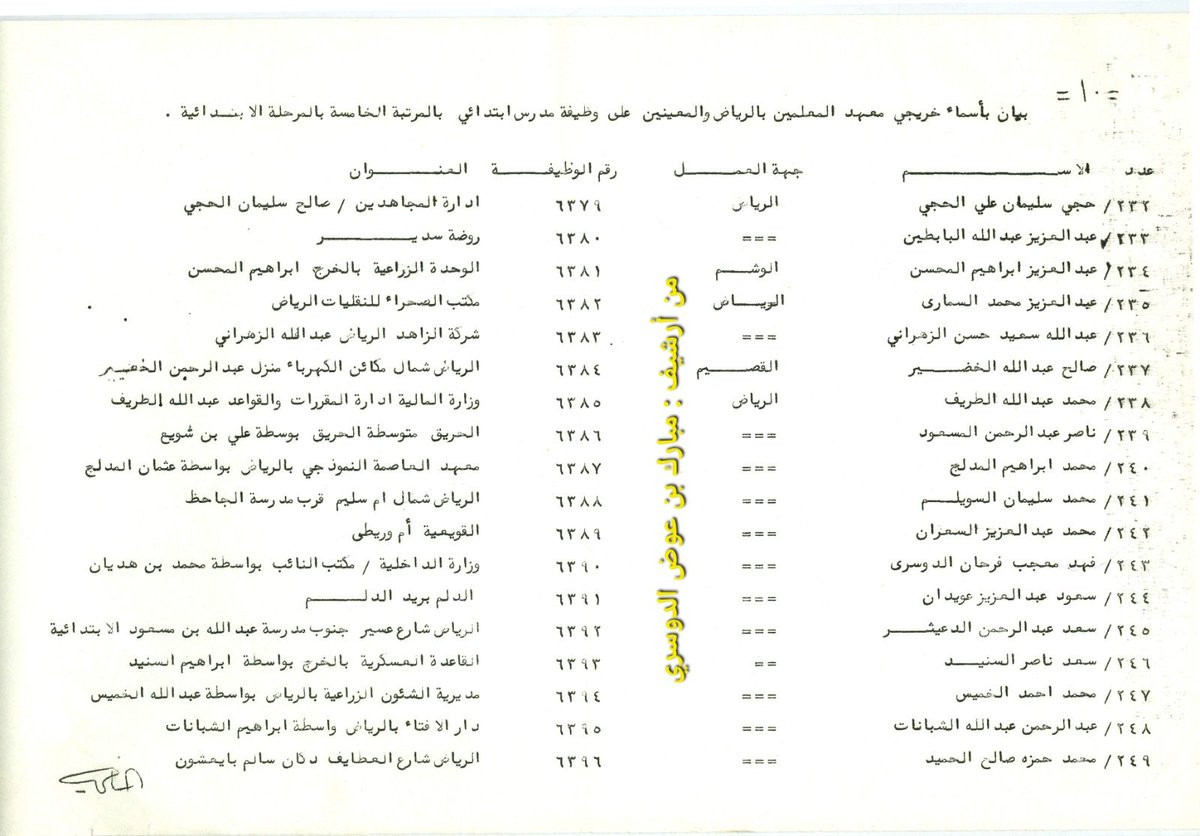 = ١٠ =
بيان بأسماء خريجي معهد المعلمين بالرياض والمعينين على وظيفة مدرس ابتدائي بالمرتبة الخامسة بالمرحلة الابتدائية .
عدد الاسم جهة العمل رقم الوظيفة العنوان
٢٣٢/ حجي سليمان علي الحجي الرياض ٦٣٧٩ ادارة المجاهدين / صالح سليمان الحجي
٢٣٣/ عبد العزيز عبد الله البابطين === ٦٣٨٠ روضة سدير
٢٣٤/ عبد العزيز ابراهيم المحسن الوشم ٦٣٨١ الوحدة الزراعية بالخرج ابراهيم المحسن
٢٣٥/ عبد العزيز محمد السمارى الرياض ٦٣٨٢ مكتب الصحراء للنقليات الرياض
٢٣٦/ عبدالله سعيد حسن الزهراني === ٦٣٨٣ شركة الزاهد الرياض عبدالله الزهراني
٢٣٧/ صالح عبد الله الخضير القصيم ٦٣٨٤ الرياض شمال مكائن الكهرباء منزل عبد الرحمن الخضير
٢٣٨/ محمد عبد الله الطريف الرياض ٦٣٨٥ وزارة المالية ادارة المقررات والقواعد عبد الله الطريف
٢٣٩/ ناصر عبد الرحمن المسعود === ٦٣٨٦ الحريق متوسطة الحريق بوسطة علي بن شويع
٢٤٠/ محمد ابراهيم المدلج === ٦٣٨٧ معهد العاصمة النموذجي بالرياض بواسطة عثمان المدلج
٢٤١/ محمد سليمان السويلم === ٦٣٨٨ الرياض شمال ام سليم قرب مدرسة الجاحظ
٢٤٢/ محمد عبد العزيز السعران === ٦٣٨٩ القويعية أم وريطى
٢٤٣/ فهد معجب فرحان الدوسرى === ٦٣٩٠ وزارة الداخلية / مكتب النائب بواسطة محمد بن هديان
٢٤٤/ سعود عبد العزيز عويدان === ٦٣٩١ الدلم بريد الدلم
٢٤٥/ سعد عبد الرحمن الدعيثر === ٦٣٩٢ الرياض شارع عسير جنوب مدرسة عبد الله بن مسعود الابتدائية
٢٤٦/ سعد ناصر السنيد == ٦٣٩٣ القاعدة العسكرية بالخرج بواسطة ابراهيم السنيد
٢٤٧/ محمد احمد الخميس === ٦٣٩٤ مديرية الشئون الزراعية بالرياض بواسطة عبد الله الخميس
٢٤٨/ عبد الرحمن عبد الله الشبانات === ٦٣٩٥ دار الافتاء بالرياض واسطة ابراهيم الشبانات
٢٤٩/ محمد حمزه صالح الحميد === ٦٣٩٦ الرياض شارع العطايف دكان سالم بايعشون
من أرشيف : مبارك بن عوض الدوسري